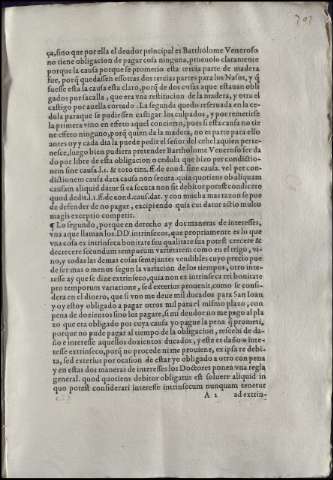 ça, sino que por ella el deudor principal es Bartholome Veneroso
no tiene obligacion de pagar cosa ninguna, prueuolo claramente
porque la causa porque se prometio esta tercia parte de madera
fue, porq̃ quedassen essotras dos tercias partes para los Nasos, y q̃
fuesse esta la causa esta claro, porq̃ de dos cosas que estauan obli
gados por sacalla, que era vna restitucion de la madera, y otra el
castigo por auella cortado: La segunda quedo reseruada en la ce
dula para que se pudiessen castigar los culpados, y por tenerse
la primera vino en efeto aquel concierto, pues si esta causa no tie
ne effeto ninguno, porq̃ quien da la madera, no es parte para ello
antes oy y cada dia la puede pedir el señor del censo a quien perte-
nesce, luego bien pudiera pretender Bartholome Veneroso ser da
do por libre de esta obligacion o cedula que hizo por condictio-
nem sine causa. l. 1. & toto titu. ff. de cond. sine causa. vel per con-
dictionem causa data causa non secuta quia quotiens ob aliquam
causam aliquid datur si ea secuta non sit debitor potest condicere
quod dedit. l. 1. ff. de cond. caus. dat. y con mucha mas razon se pue
de defender de no pagar, excipiendo quia cui datur actio multo
magis exceptio competit.
¶ Lo segundo, porque en derecho ay dos maneras de interesses,
vna a que llaman los. DD. intrinsecos, que propriamente es lo que
vna cosa ex intrinseca bonitate sua qualitate sua potest crescere &
decrescere secundum temporum varietatem como en el trigo, vi-
no, y todas las demas cosas semejantes vendibles cuyo precio pue
de ser mas o menos segun la variacion de los tiempos, otro inte-
resse ay que se dize extrinseco, quia non ex intrinseca rei bonitate
pro temporum variatione, sed exterius prouenit, como se consi-
dera en el dinero, que si vno me deue mil ducados para San Ioan,
y oy estoy obligado a pagar otros mil para el mismo plazo, con
pena de dozientos sino los pagare, si mi deudor no me pago al pla
zo que era obligado por cuya causa yo pague la pena q̃ prometi,
porque no pude pagar al tiempo de la obligacion, rescebi de da-
ño e interesse aquellos dozientos ducados, y este es daño e inte-
resse extrinseco, porq̃ no procede ni me prouiene, ex ipsa re debi-
ta, sed exterius por ocasion de estar yo obligado a otro con pena
y en estas dos maneras de interesses los Doctores ponen vna regla
general. quod quotiens debitor obligatus est soluere aliquid in
quo potest considerari interesse intrinsecum nunquam tenetur
A 2 ad extrin-